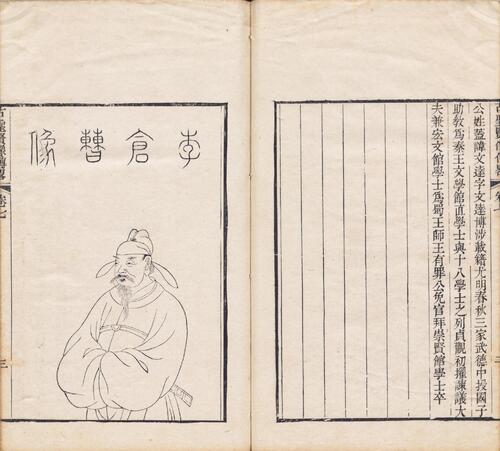 公姓蓋諱文達字文達博涉載籍尤明春秋三家武德中授國子
助教爲秦王文學館直學士與十八學士之列貞觀初擢諫議大
夫兼宏文館學士爲蜀王師王有罪公免官拜崇賢館學士卒
李倉曹像
古聖賢像傳略 卷七 三